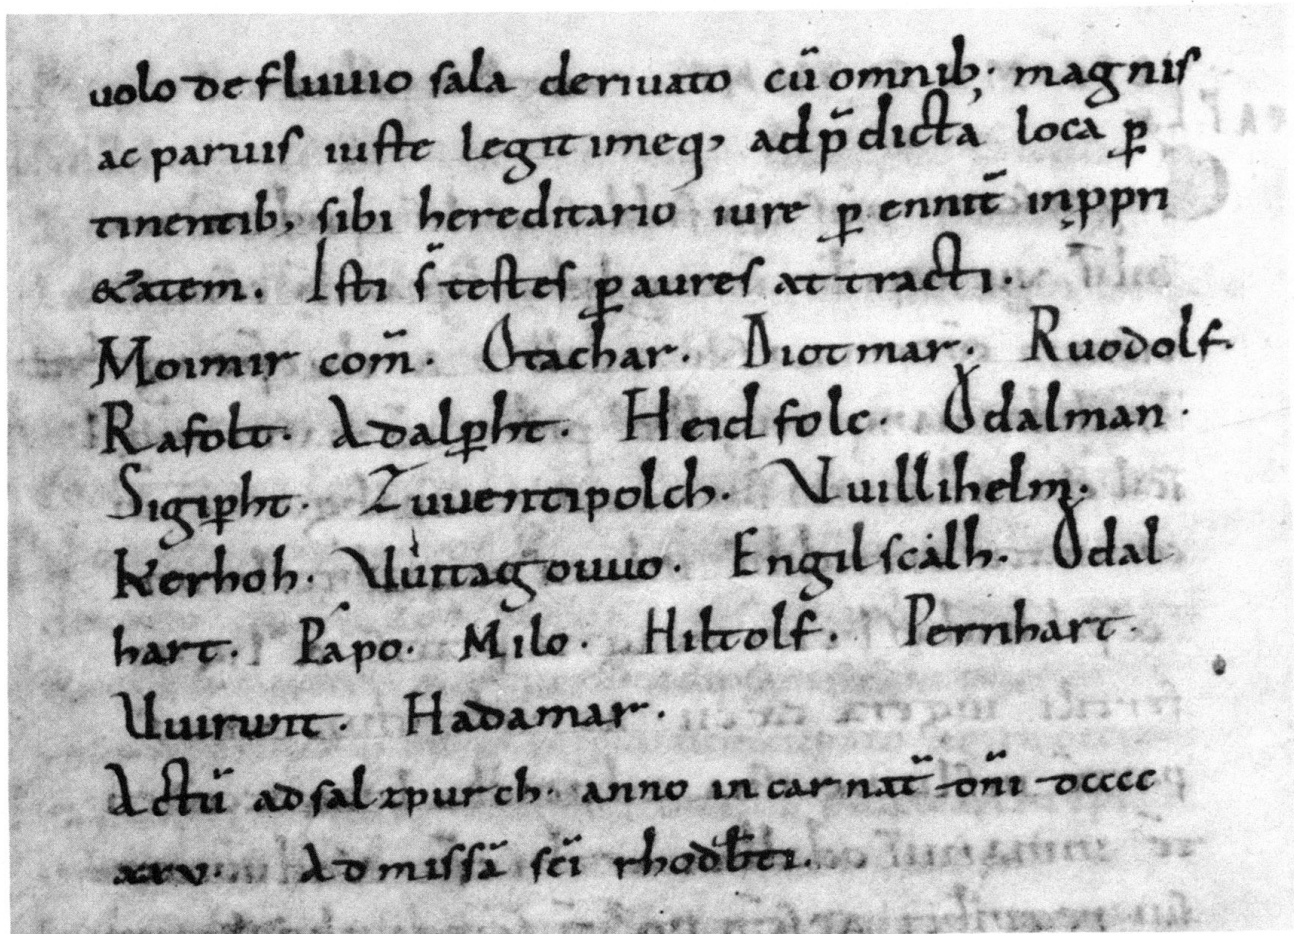 uolo de fluuio sala deriuato cū omnib; magnis
ac paruis iuste legitimeq, ad p̄dicta loca ꝑ
tinentib, sibi hereditario iure ꝑennit̄ in ꝓpri
&atem. Isti s̄ testes ꝑ aures attracti.
Moimir com̄. Otachar. Diotmar. Ruodolf.
Rafolt. Adalꝑht. Heidfolc. Odalman.
Sigiꝑht. Zuuentipolch. Vuillihelm.
Kerhoh. Vuitagouuo. Engilscalh. Odal
hart. Papo. Milo. Hiltolf. Pernhart.
Uuirunt. Hadamar.
Actū ad salzpurch. anno incarnat̄ dn̄i dcccc
xxv. Ad missā sc̄i rhodb̄ti.